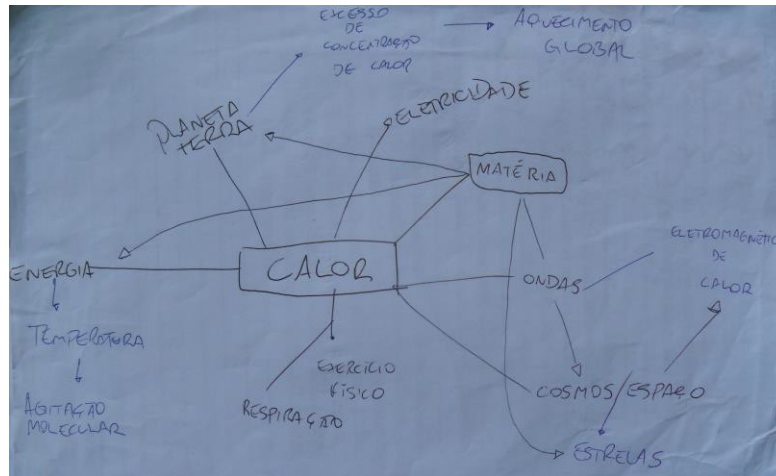 EXCESSO
DE
CONCENTRAÇÃO
DE CALOR
AQUECIMENTO
GLOBAL
PLANETA
TERRA
ELETRICIDADE
MATÉRIA
ENERGIA
CALOR
ONDAS
ELETROMAGNÉTICO
DE
CALOR
TEMPERATURA
AGITAÇÃO
MOLECULAR
EXERCÍCIO
FÍSICO
RESPIRAÇÃO
COSMOS/ESPAÇO
ESTRELAS